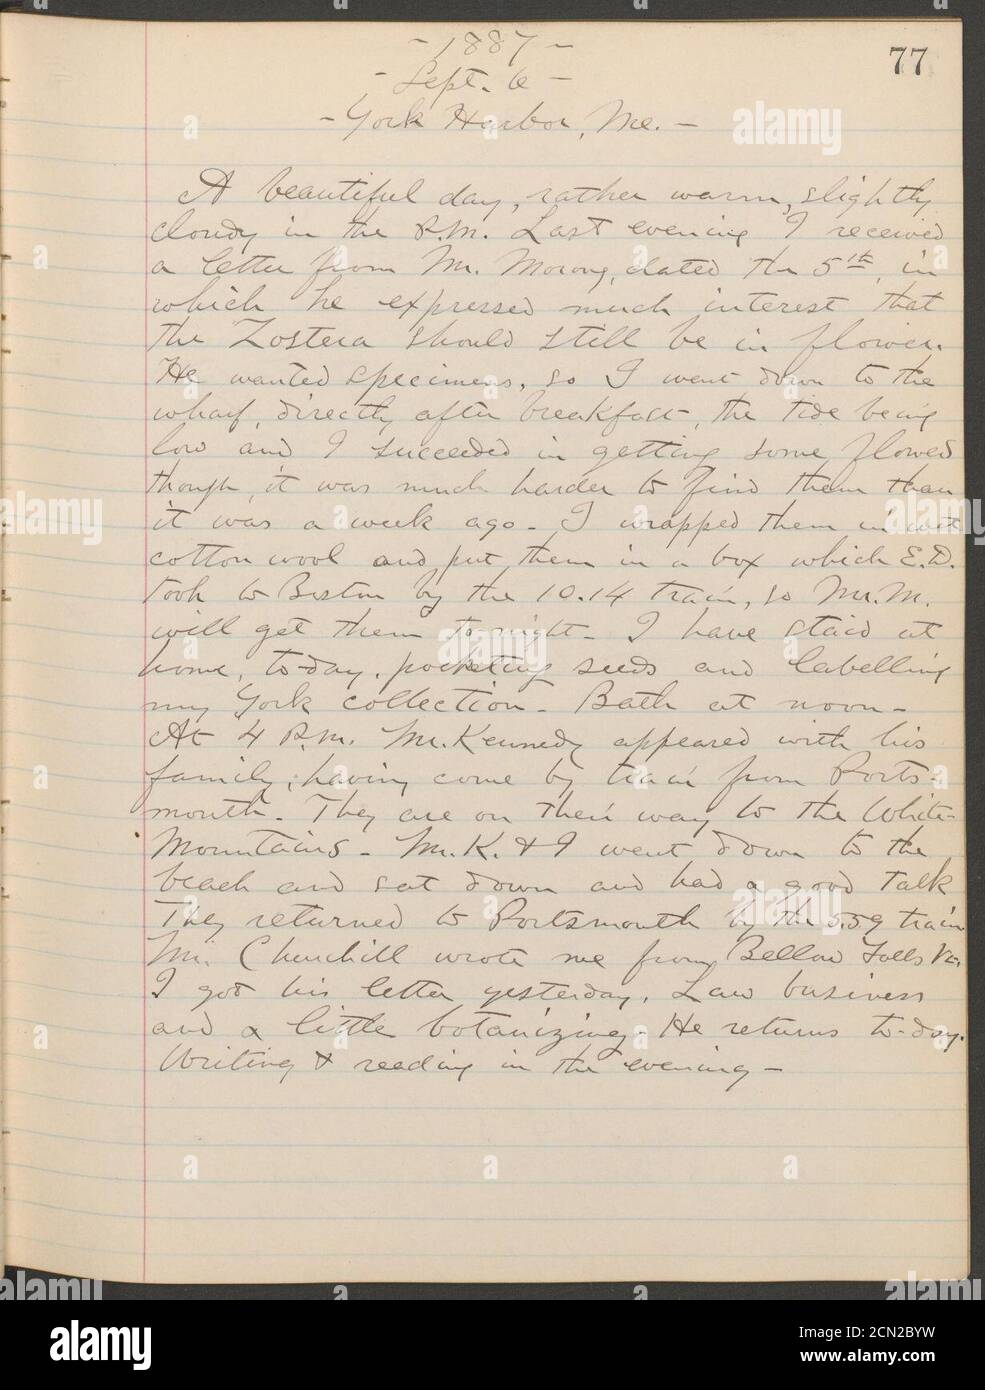 - 1887 -
77
- Sept. 6 -
- York Harbor, Me. -
A beautiful day, rather warm, slightly
cloudy in the P.M. Last evening I received
a letter from Mr. Morong, dated the 5th, in
which he expressed much interest that
the Zostera should still be in flower.
He wanted specimens, so I went down to the
wharf, directly after breakfast, the tide being
low and I succeeded in getting some flowers
though it was much harder to find them than
it was a week ago - I wrapped them in wet
cotton wool and put them in a box which E.D.
took to Boston by the 10.14 train, so Mr. M.
will get them to-night - I have staid at
home, to-day, pocketing seeds and labelling
my York collection - Bath at noon -
At 4 P.M. Mr. Kennedy appeared with his
family, having come by train from Ports-
mouth - They are on their way to the White-
Mountains - Mr. K. & I went down to the
beach and sat down and had a good talk
They returned to Portsmouth by the 5.59 train
Mr. Churchill wrote me from Bellow Falls Vt.
I got his letter yesterday. Law business
and a little botanizing - He returns to-day.
Writing & reading in the evening -
alamy
Image ID: 2CN2BYW
www.alamy.com